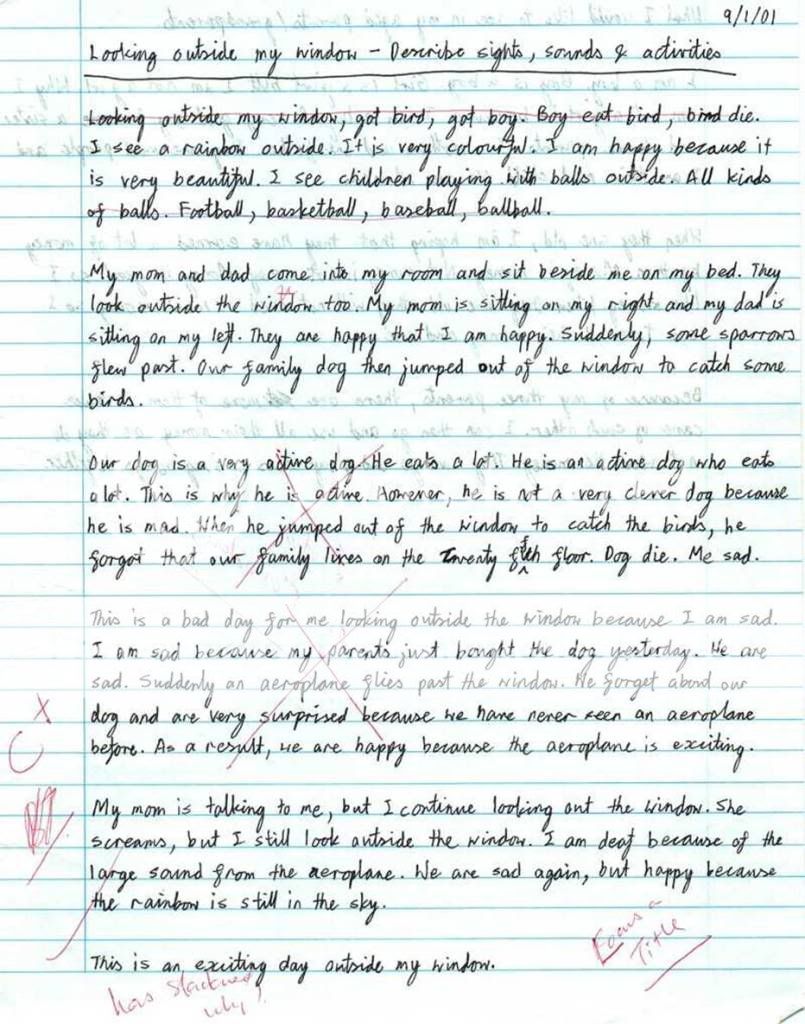 9/1/01
Looking outside my window - Describe sights, sounds & activities
Looking outside my window, got bird, got boy. Boy eat bird, bird die.
I see a rainbow outside. It is very colourful. I am happy because it
is very beautiful. I see children playing with balls outside. All kinds
of balls. Football, basketball, baseball, ballball.
My mom and dad come into my room and sit beside me on my bed. They
look outside the window too. My mom is sitting on my right and my dad is
sitting on my left. They are happy that I am happy. Suddenly, some sparrows
flew past. Our family dog then jumped out of the window to catch some
birds.
Our dog is a very active dog. He eats a lot. He is an active dog who eats
a lot. This is why he is active. However, he is not a very clever dog because
he is mad. When he jumped out of the window to catch the birds, he
forgot that our family lives on the twenty fifth floor. Dog die. Me sad.
This is a bad day for me looking outside the window because I am sad.
I am sad because my parents just bought the dog yesterday. We are
sad. Suddenly an aeroplane flies past the window. We forget about our
dog and are very surprised because we have never seen an aeroplane
before. As a result, we are happy because the aeroplane is exciting.
My mom is talking to me, but I continue looking out the window. She
screams, but I still look outside the window. I am deaf because of the
large sound from the aeroplane. We are sad again, but happy because
the rainbow is still in the sky.
This is an exciting day outside my window.
Focus on
Title
has slackened
why?